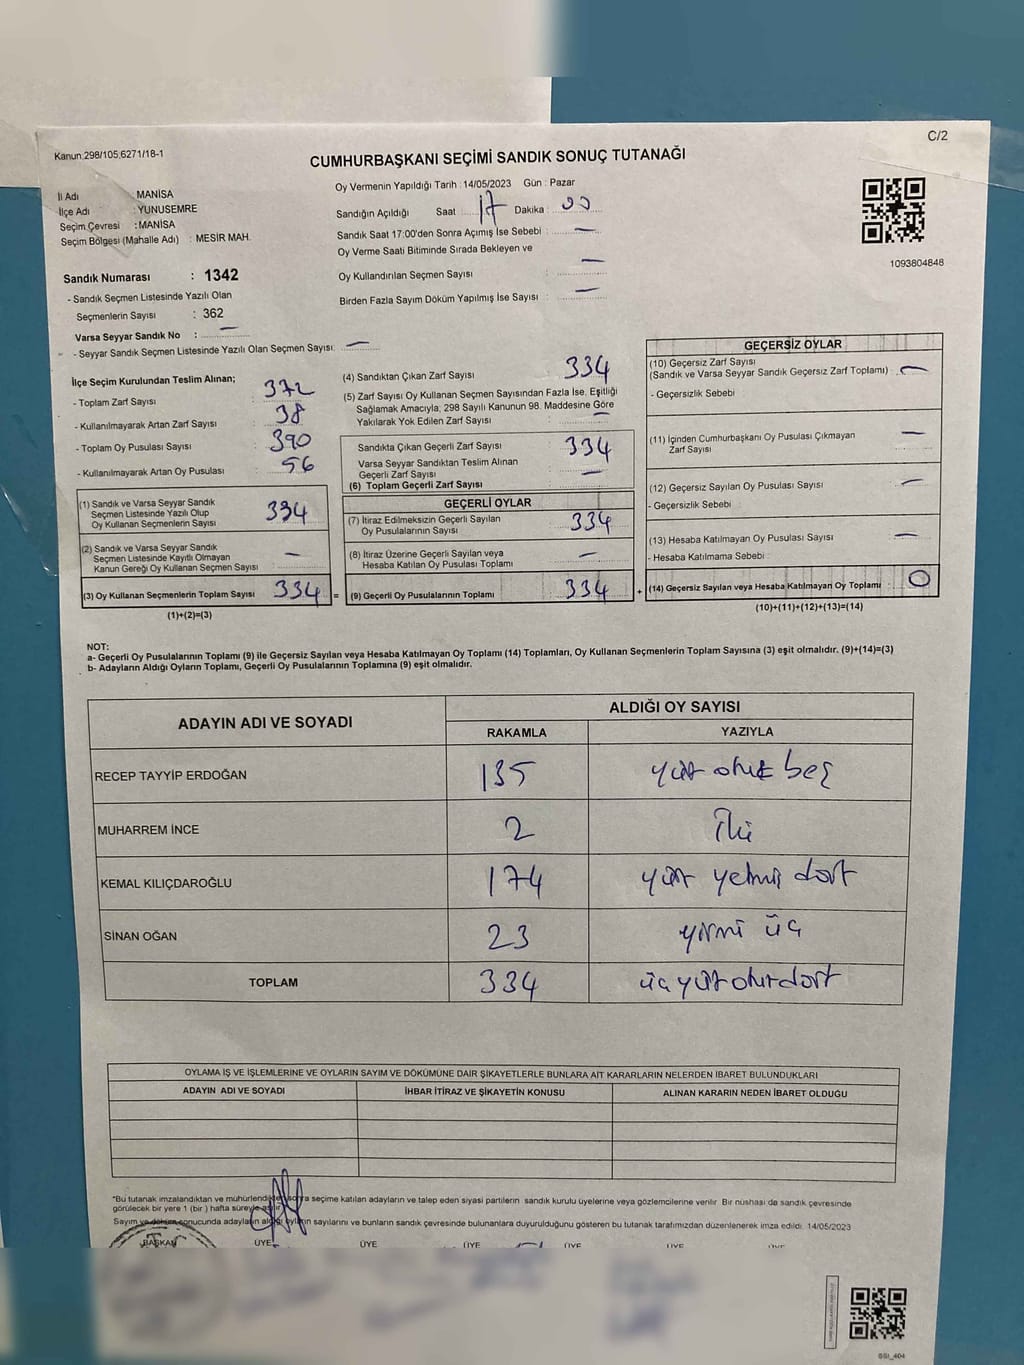 C/2
Kanun:298/105;6271/18-1
CUMHURBAŞKANI SEÇİMİ SANDIK SONUÇ TUTANAĞI
İl Adı : MANİSA
İlçe Adı : YUNUSEMRE
Seçim Çevresi : MANİSA
Seçim Bölgesi (Mahalle Adı) : MESİR MAH.
Oy Vermenin Yapıldığı Tarih :14/05/2023 Gün : Pazar
Sandığın Açıldığı Saat 17 Dakika : 00
Sandık Saat 17:00'den Sonra Açımış İse Sebebi : —
Oy Verme Saati Bitiminde Sırada Bekleyen ve
Oy Kullandırılan Seçmen Sayısı : —
Birden Fazla Sayım Döküm Yapılmış İse Sayısı : —
1093804848
Sandık Numarası : 1342
- Sandık Seçmen Listesinde Yazılı Olan
Seçmenlerin Sayısı : 362
Varsa Seyyar Sandık No : —
- Seyyar Sandık Seçmen Listesinde Yazılı Olan Seçmen Sayısı: —
İlçe Seçim Kurulundan Teslim Alınan;
- Toplam Zarf Sayısı : 372
- Kullanılmayarak Artan Zarf Sayısı : 38
- Toplam Oy Pusulası Sayısı : 390
- Kullanılmayarak Artan Oy Pusulası : 56
(1) Sandık ve Varsa Seyyar Sandık
Seçmen Listesinde Yazılı Olup
Oy Kullanan Seçmenlerin Sayısı : 334
(2) Sandık ve Varsa Seyyar Sandık
Seçmen Listesinde Kayıtlı Olmayan
Kanun Gereği Oy Kullanan Seçmen Sayısı : —
(3) Oy Kullanan Seçmenlerin Toplam Sayısı : 334 =
(1)+(2)=(3)
(4) Sandıktan Çıkan Zarf Sayısı : 334
(5) Zarf Sayısı Oy Kullanan Seçmen Sayısından Fazla İse, Eşitliği
Sağlamak Amacıyla; 298 Sayılı Kanunun 98. Maddesine Göre
Yakılarak Yok Edilen Zarf Sayısı : —
Sandıkta Çıkan Geçerli Zarf Sayısı : 334
Varsa Seyyar Sandıktan Teslim Alınan
Geçerli Zarf Sayısı : —
(6) Toplam Geçerli Zarf Sayısı
GEÇERLİ OYLAR
(7) İtiraz Edilmeksizin Geçerli Sayılan
Oy Pusulalarının Sayısı : 334
(8) İtiraz Üzerine Geçerli Sayılan veya
Hesaba Katılan Oy Pusulası Toplamı : —
(9) Geçerli Oy Pusulalarının Toplamı : 334 +
GEÇERSİZ OYLAR
(10) Geçersiz Zarf Sayısı
(Sandık ve Varsa Seyyar Sandık Geçersiz Zarf Toplamı) : —
- Geçersizlik Sebebi :
(11) İçinden Cumhurbaşkanı Oy Pusulası Çıkmayan
Zarf Sayısı : —
(12) Geçersiz Sayılan Oy Pusulası Sayısı : —
- Geçersizlik Sebebi :
(13) Hesaba Katılmayan Oy Pusulası Sayısı : —
- Hesaba Katılmama Sebebi :
(14) Geçersiz Sayılan veya Hesaba Katılmayan Oy Toplamı : 0
(10)+(11)+(12)+(13)=(14)
NOT:
a- Geçerli Oy Pusulalarının Toplamı (9) ile Geçersiz Sayılan veya Hesaba Katılmayan Oy Toplamı (14) Toplamları, Oy Kullanan Seçmenlerin Toplam Sayısına (3) eşit olmalıdır. (9)+(14)=(3)
b- Adayların Aldığı Oyların Toplamı, Geçerli Oy Pusulalarının Toplamına (9) eşit olmalıdır.
ADAYIN ADI VE SOYADI ALDIĞI OY SAYISI
RAKAMLA YAZIYLA
RECEP TAYYİP ERDOĞAN 135 yüz otuz beş
MUHARREM İNCE 2 İki
KEMAL KILIÇDAROĞLU 174 yüz yetmiş dört
SİNAN OĞAN 23 yirmi üç
TOPLAM 334 üç yüz otuz dört
OYLAMA İŞ VE İŞLEMLERİNE VE OYLARIN SAYIM VE DÖKÜMÜNE DAİR ŞİKAYETLERLE BUNLARA AİT KARARLARIN NELERDEN İBARET BULUNDUKLARI
ADAYIN ADI VE SOYADI İHBAR İTİRAZ VE ŞİKAYETİN KONUSU ALINAN KARARIN NEDEN İBARET OLDUĞU
*Bu tutanak imzalandıktan ve mühürlendikten sonra seçime katılan adayların ve talep eden siyasi partilerin sandık kurulu üyelerine veya gözlemcilerine verilir. Bir nüshası da sandık çevresinde
görülecek bir yere 1 (bir) hafta süreyle asılır.
Sayım ve döküm sonucunda adayların aldığı oyların sayılarını ve bunların sandık çevresinde bulunanlara duyurulduğunu gösteren bu tutanak tarafımızdan düzenlenerek imza edildi. 14/05/2023
BAŞKAN ÜYE ÜYE ÜYE ÜYE ÜYE ÜYE